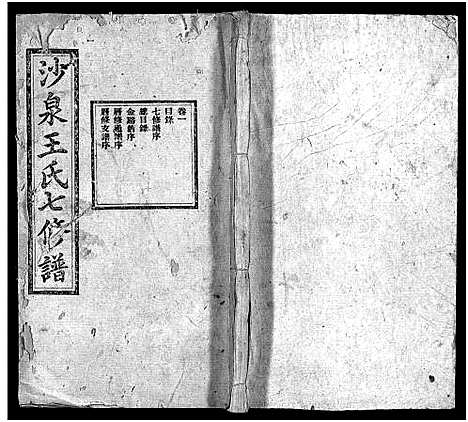 沙泉王氏七修譜
卷一
目錄
七修譜序
總目錄
金谿舊序
歷修通譜序
歷修支譜序